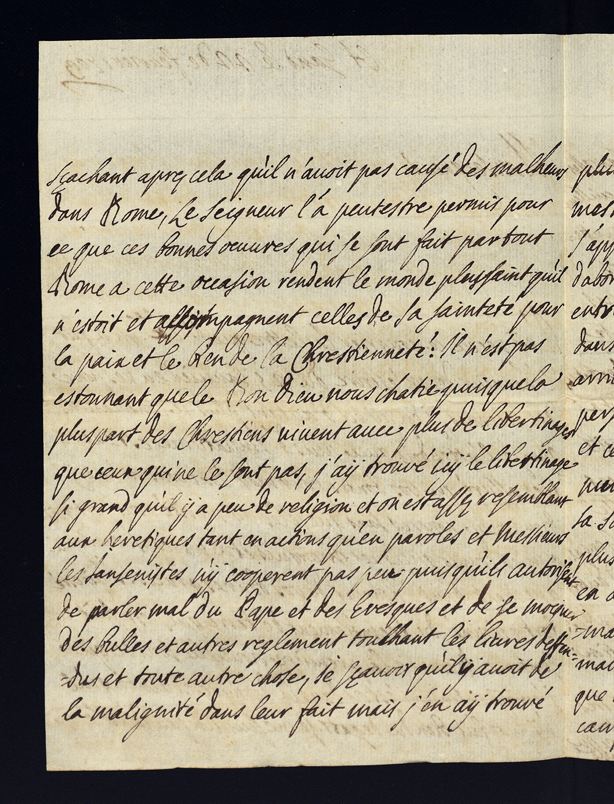 sçachant apres cela quil n'auoit pas causé des malheurs
dans Rome, Le Seigneur l'a peutestre permis pour
ce que ces bonnes oeuures qui se sont fait partout
Rome a cette occasion rendent le monde plussaint quil
n'estoit et accompagnent celles de sa sainteté pour
la paix et le bien de la Chrestienneté: Il n'est pas
estonnant que le Bon Dieu nous chatie puisque la
pluspart des Chrestiens viuent auec plus de libertinage
que ceux qui ne le sont pas, j'aÿ trouvé icy le libertinage
si grand qu'il ÿ a peu de religion et on est assez resemblant
aux heretiques tant en actions qu'en paroles et Messieurs
les Jansenistes n'ÿ cooperent pas peu puisqu'ils autorisent
de parler mal du Pape et des Evesques et de se mocquer
des bulles et autres reglement touchant les liures deffen=
=dus et toute autre chose, je sçauois quil ÿ auoit de
la malignité dans leur fait mais j'en aÿ trouvé
plus